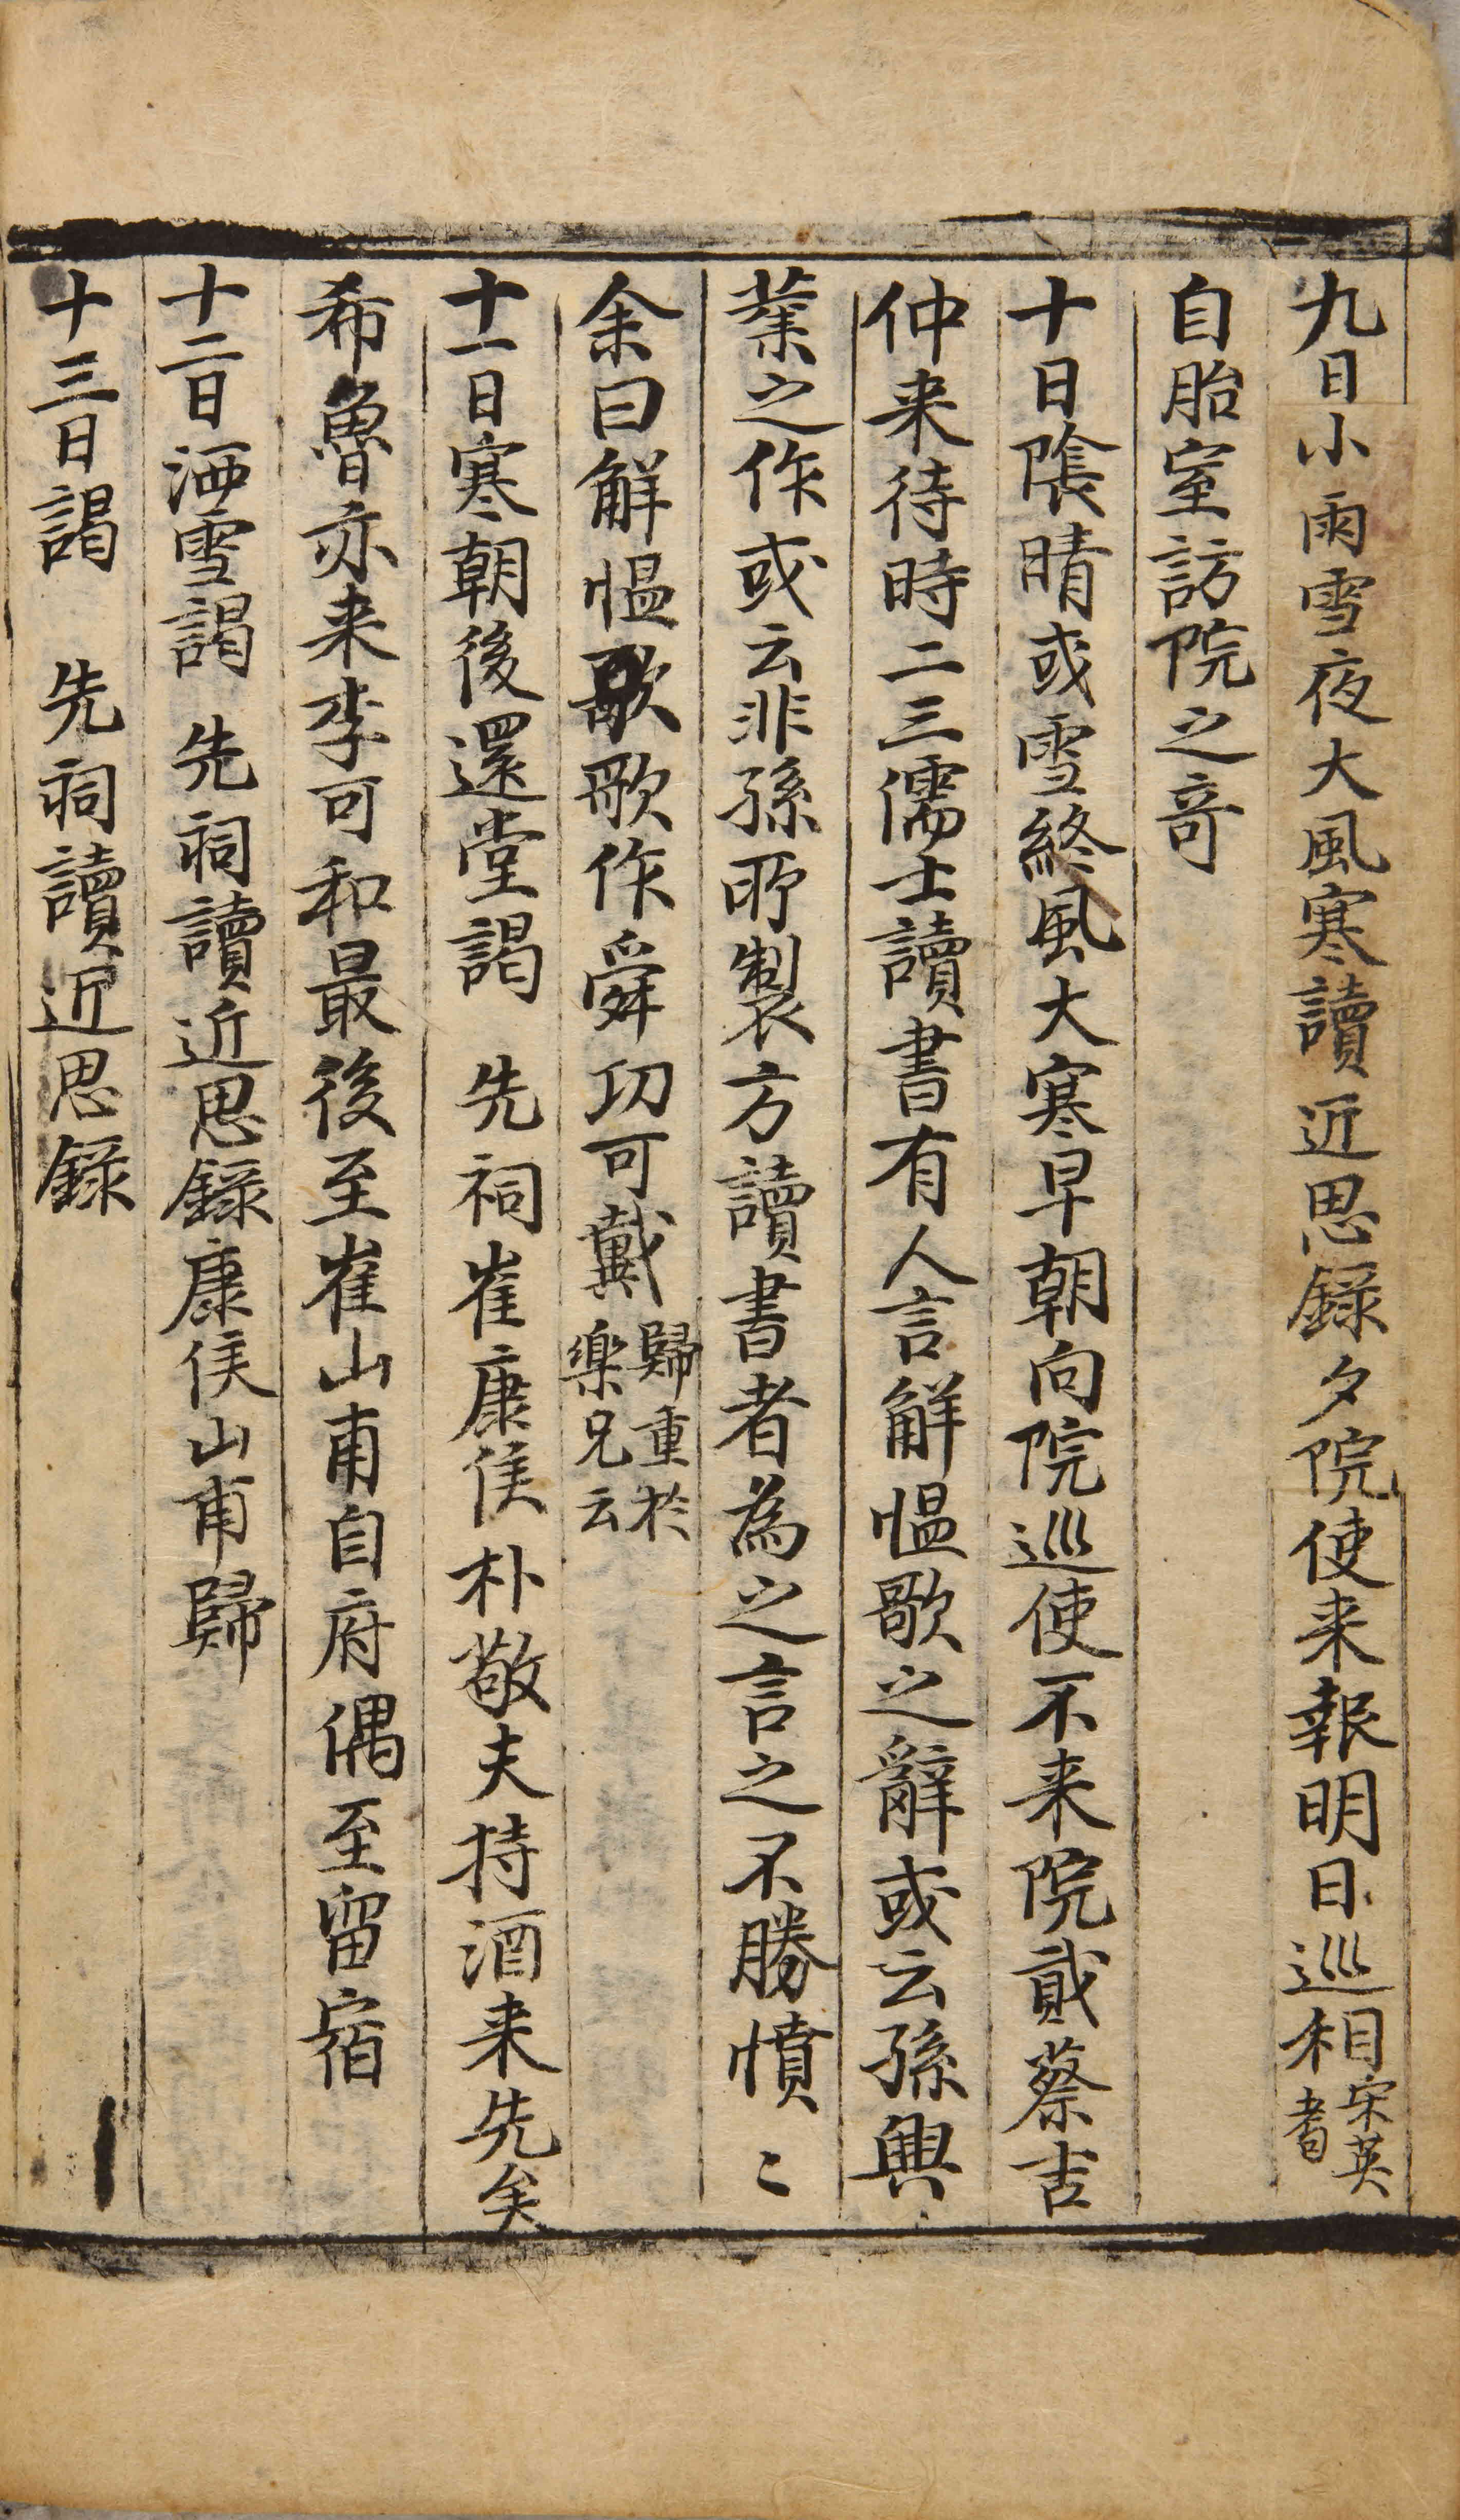 九日小雨雪夜大風寒讀近思錄夕院使来報明日巡相宋英耉
自胎室訪院之奇
十日陰晴或雪終風大寒早朝向院巡使不来院貳蔡吉
仲来待時二三儒士讀書有人言解慍歌之辭或云孫興
業之作或云非孫所製方讀書者為之言之不勝憤〻
余曰解慍歌歌作舜功可戴歸重於樂兄云
十一日寒朝後還堂謁 先祠崔康侯朴敬夫持酒来先矣
希魯亦来李可和最後至崔山甫自府偶至留宿
十二日洒雪謁 先祠讀近思錄康侯山甫歸
十三日謁 先祠讀近思錄